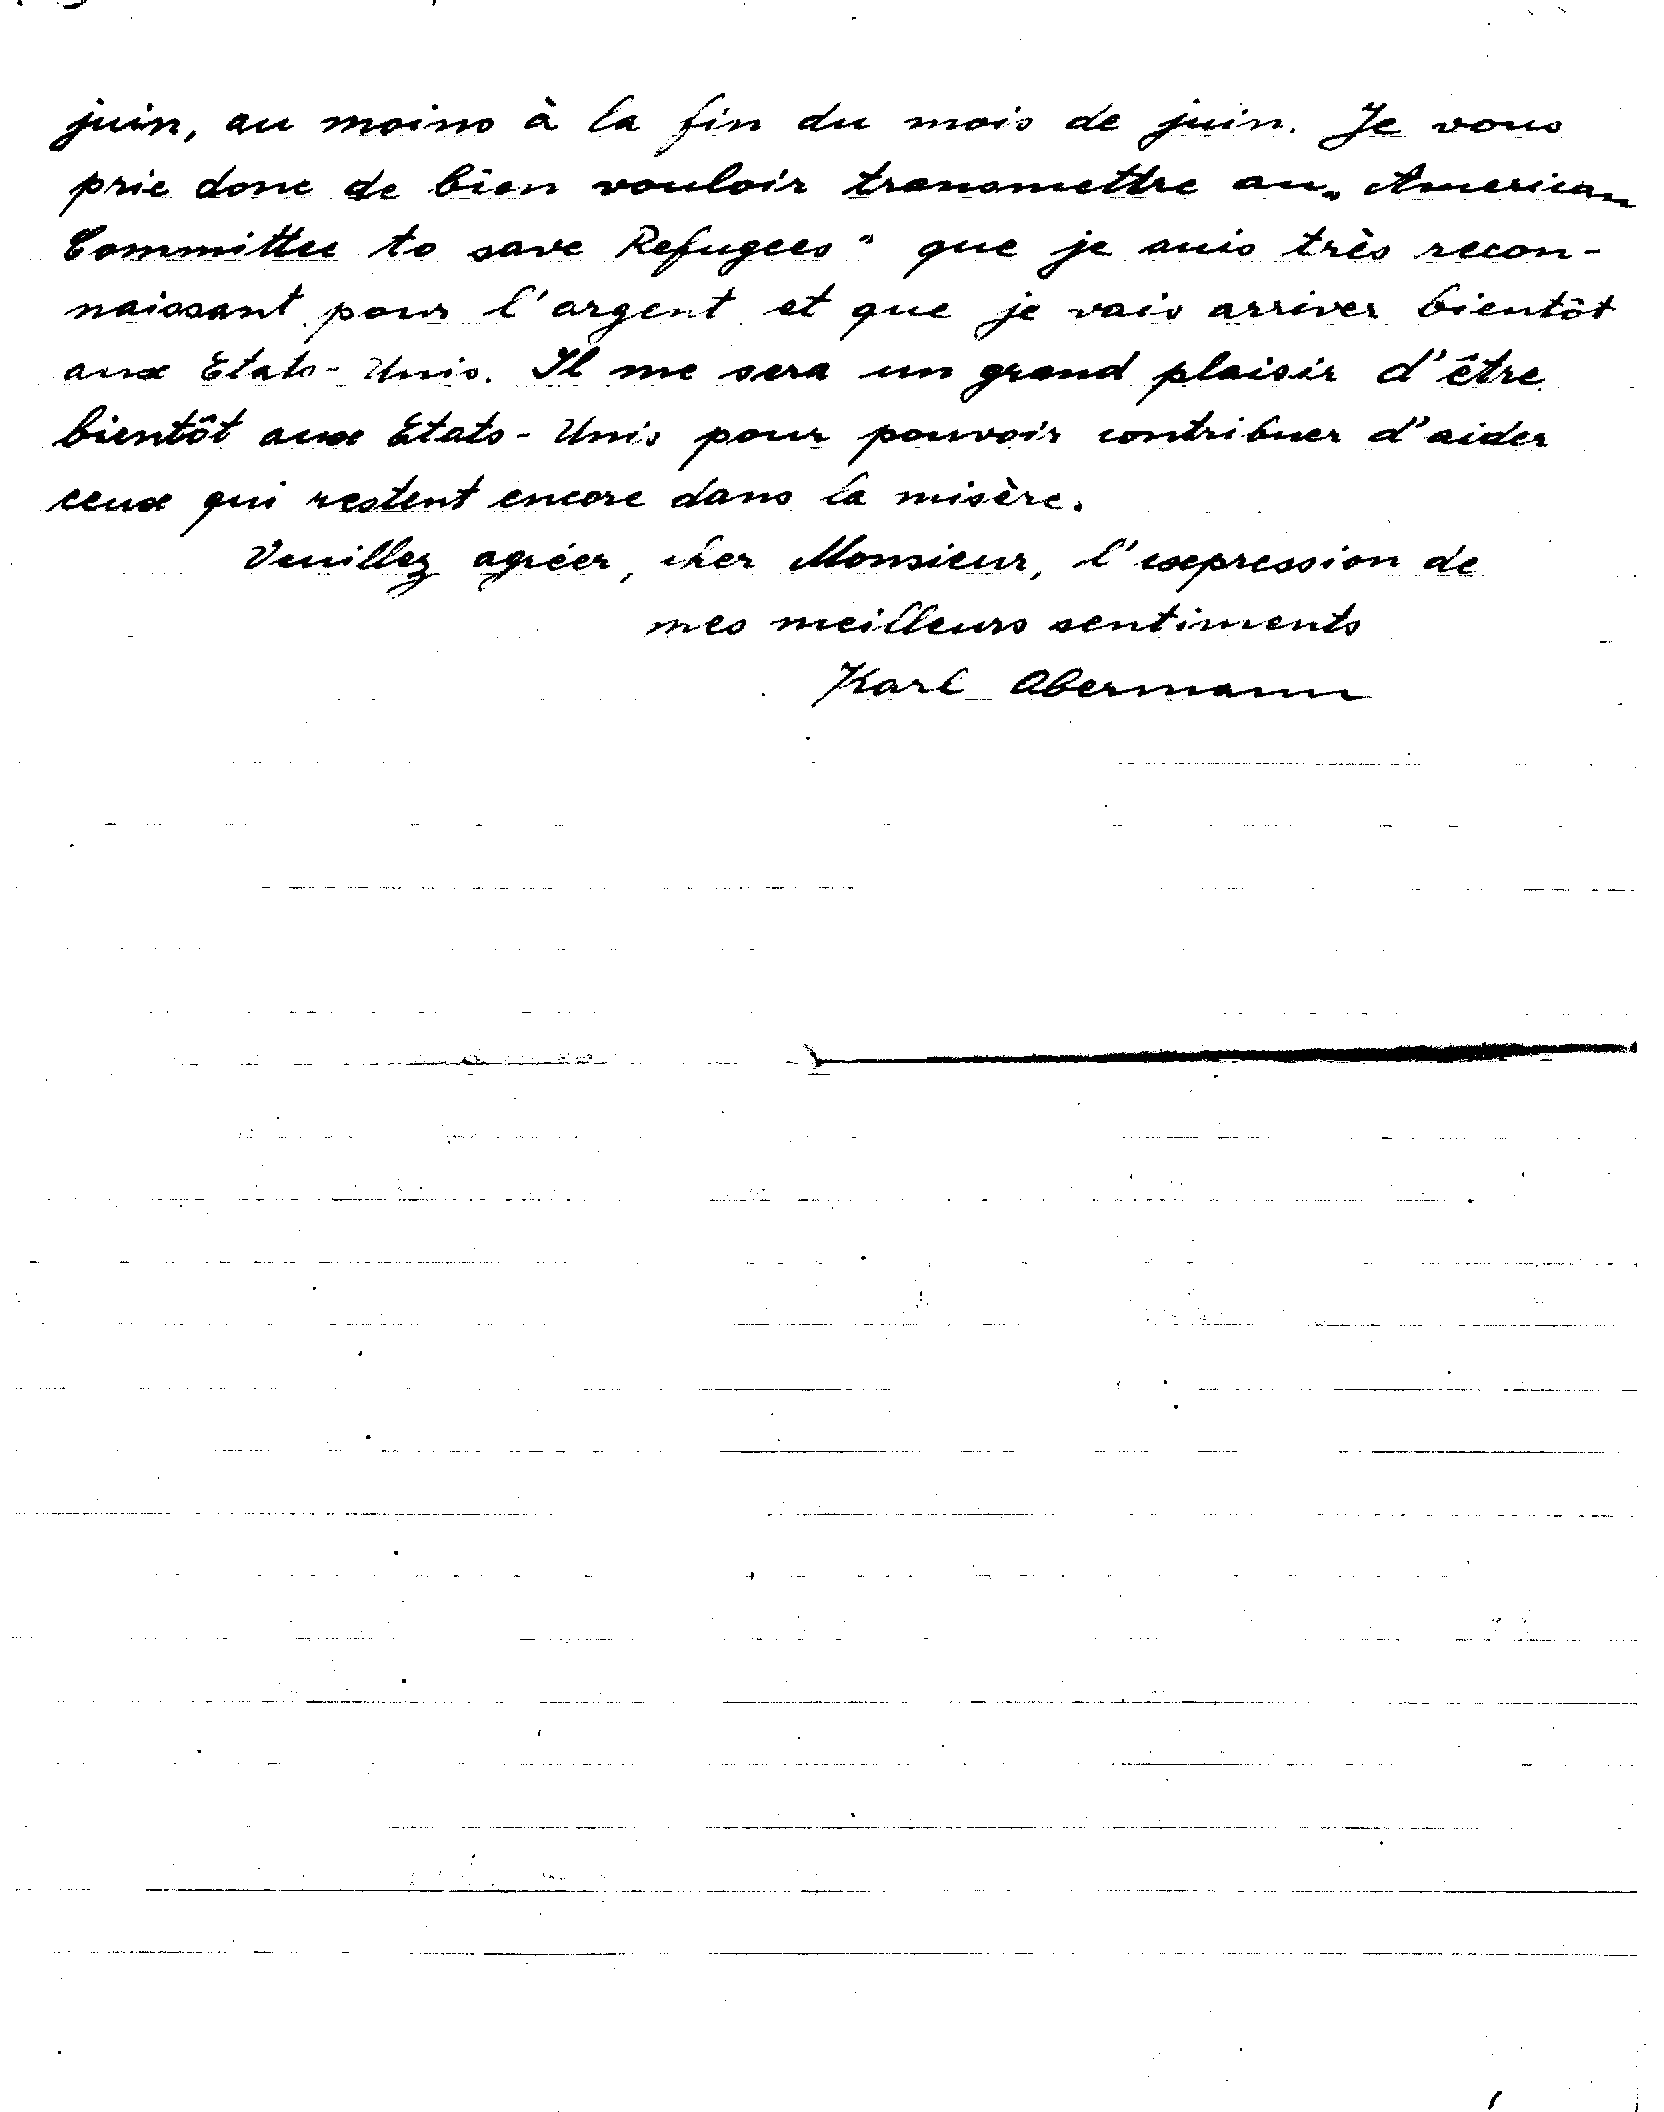 juin, au moins à la fin du mois de juin. Je vous
prie donc de bien vouloir transmettre au „American
Committee to save Refugees" que je suis très recon-
naissant pour l'argent et que je vais arriver bientôt
aux Etats-Unis. Il me sera un grand plaisir d'être
bientôt aux Etats-Unis pour pouvoir contribuer d'aider
ceux qui restent encore dans la misère.
Veuillez agréer, cher Monsieur, l'expression de
mes meilleurs sentiments
Karl Obermann